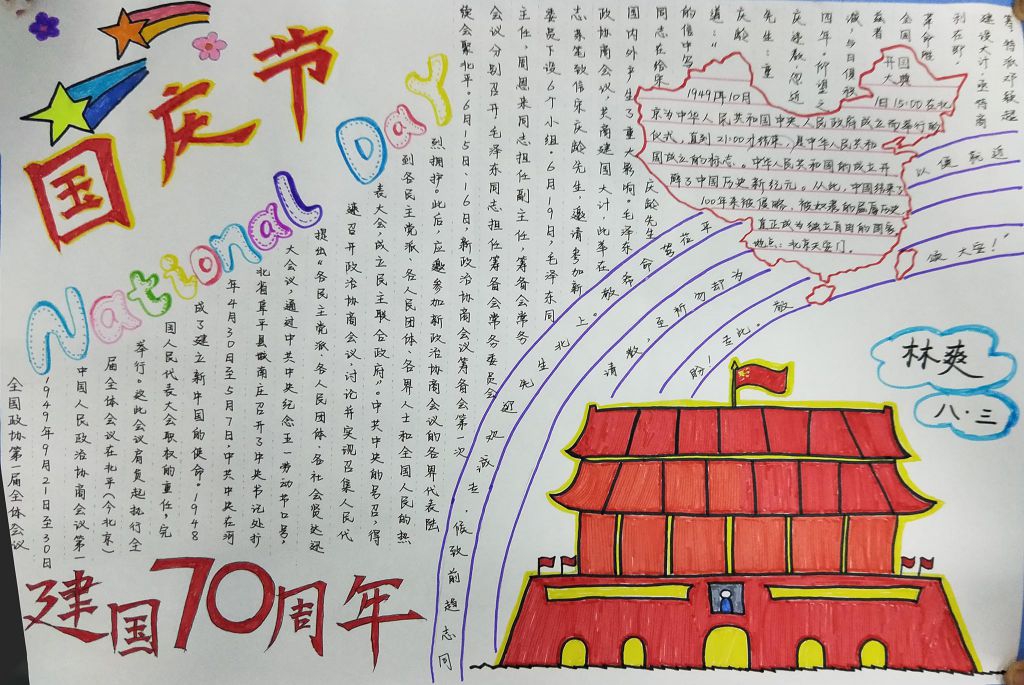 国庆节
National Day
全国政协第一届全体会议
1949年9月21日至30日
中国人民政治协商会议第一
届全体会议在北平(今北京)
举行。这此会议肩负起执行全
国人民代表大会职权的重任,完
成了建立新中国的使命。1948
年4月30日至5月7日,中共中央在河
北省阜平县城南庄召开了中央书记处扩
大会议,通过中共中央纪念五一劳动节口号,
提出“各民主党派、各人民团体、各社会贤达迅
速召开政治协商会议,讨论并实现召集人民代
表大会,成立民主联合政府”中共中央的号召,得
到各民主党派、各人民团体、各界人士和全国人民的热
烈拥护。此后,应邀参加新政治协商会议的各界代表陆
续会聚北平。6月15日、16日,新政治协商会议筹备会第一次
会议分别召开毛泽东同志担任筹备会常务委员会
主任,周恩来同志担任副主任。筹备会常务
委员下设6个小组。6月19日,毛泽东同
志亲笔致信宋庆龄先生,邀请参加新
政协商会议,共商建国大计,此举在
国内外产生了重大影响。毛泽东
同志在给宋庆龄先生
的信中写
道:“
庆龄
先生:重
庆违教,忽近
四年。仰望之
诚,与日俱积
兹者
全国
革命胜
利在即,
建设大计,亟待商
筹,特派邓颖超
同志趋前致候.专诚欢迎先生北上。敬希命驾莅平
以便就近请教,至祈勿却为
盼!专此。敬
大安!”
开国
大典
1949年10月
1日15:00在北
京为中华人民共和国中央人民政府成立而举行的
仪式,直到21:00才结束,是中华人民共和
国成立的标志。中华人民共和国的成立开
辟了中国历史新纪元。从此,中国结束了
100年来被侵略、被奴役的屈辱历史
真正成为独立自由的国家
地点:北京天安门。
林爽
八·三
建国70周年